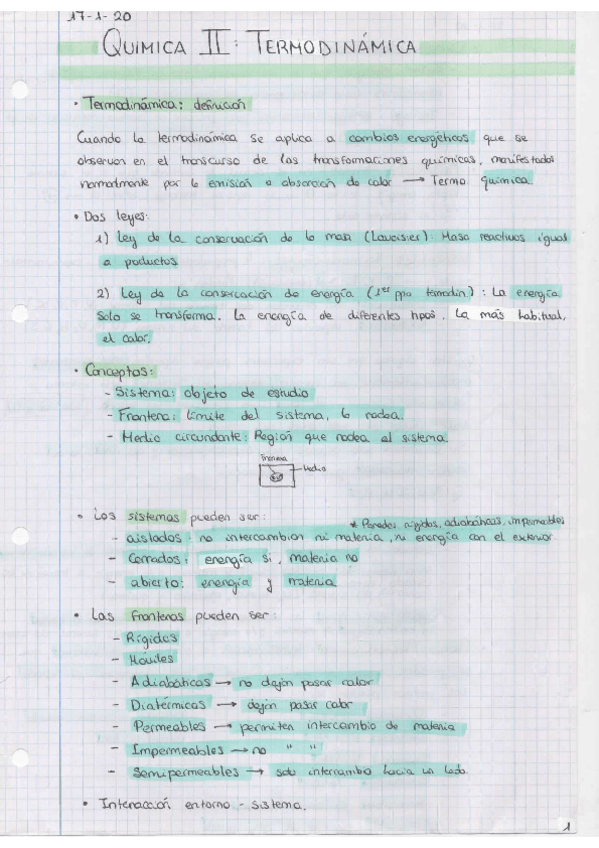 17-1-20
QUIMICA II: TERMODINÁMICA
• Termodinámica: definición
Cuando la termodinámica se aplica a cambios energéticos que se
observan en el transcurso de las transformaciones químicas, manifestados
normalmente por la emisión o absorción de calor → Termo química.
• Dos leyes:
1) Ley de la conservación de la masa (Lavoisier): Masa reactivos igual
a productos
2) Ley de la conservación de energía (1er ppio termodin.): La energía
solo se transforma. La energía de diferentes tipos. La más habitual,
el calor.
• Conceptos:
- Sistema: objeto de estudio
- Frontera: límite del sistema, lo rodea.
- Medio circundante: Región que rodea al sistema.
Frontera
Medio
• Los sistemas pueden ser:
* Paredes rígidas, adiabáticas, impermeables
- aislados: no intercambian ni materia, ni energía con el exterior
- Cerrados: energía si, materia no
- abierto: energía y materia
• Las fronteras pueden ser:
- Rígidas
- Móviles
- Adiabáticas → no dejan pasar calor
- Diatérmicas → dejan pasar calor
- Permeables → permiten intercambio de materia
- Impermeables → no " "
- Semipermeables → solo intercambio hacia un lado.
• Interacción entorno - sistema.
1